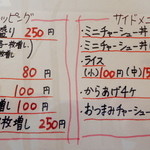 ッピング
盛り 250円
80円
100円
増し 100円
枚増し 250円
サイドメ
・ミニチャーシュー丼
・ミニチャーシュー丼
・ライス
(小)100円(中)15
・からあげ4ケ
・おつまみチャーシュー